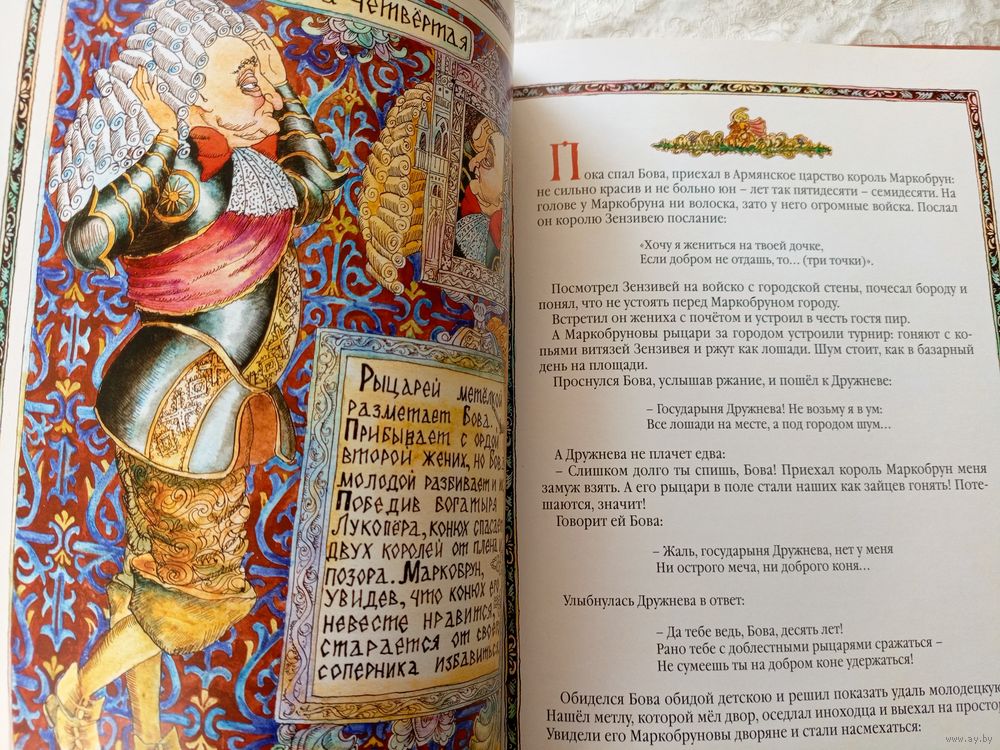 ЧЕТВЁРТАЯ
РЫЦАРЕЙ МЕТЁЛКОЙ
РАЗМЕТАЕТ БОВА.
ПРИБЫВАЕТ С ОРДОЙ
ВТОРОЙ ЖЕНИХ, НО БОВА
МОЛОДОЙ РАЗБИВАЕТ И
ПОБЕДИВ БОГАТЫРЯ
ЛУКОПЁРА, КОНЮХ СПАСАЕТ
ДВУХ КОРОЛЕЙ ОТ ПЛЕНА И
ПОЗОРА. МАРКОБРУН,
УВИДЕВ, ЧТО КОНЮХ ЕГО
НЕВЕСТЕ НРАВИТСЯ,
СТАРАЕТСЯ ОТ СВОЕГО
СОПЕРНИКА ИЗБАВИТЬСЯ
Пока спал Бова, приехал в Армянское царство король Маркобрун:
не сильно красив и не больно юн – лет так пятидесяти – семидесяти. На
голове у Маркобруна ни волоска, зато у него огромные войска. Послал
он королю Зензивею послание:
«Хочу я жениться на твоей дочке,
Если добром не отдашь, то… (три точки)».
Посмотрел Зензивей на войско с городской стены, почесал бороду и
понял, что не устоять перед Маркобруном городу.
Встретил он жениха с почётом и устроил в честь гостя пир.
А Маркобруновы рыцари за городом устроили турнир: гоняют с ко-
пьями витязей Зензивея и ржут как лошади. Шум стоит, как в базарный
день на площади.
Проснулся Бова, услышав ржание, и пошёл к Дружневе:
– Государыня Дружнева! Не возьму я в ум:
Все лошади на месте, а под городом шум…
А Дружнева не плачет едва:
– Слишком долго ты спишь, Бова! Приехал король Маркобрун меня
замуж взять. А его рыцари в поле стали наших как зайцев гонять! Поте-
шаются, значит!
Говорит ей Бова:
– Жаль, государыня Дружнева, нет у меня
Ни острого меча, ни доброго коня…
Улыбнулась Дружнева в ответ:
– Да тебе ведь, Бова, десять лет!
Рано тебе с доблестными рыцарями сражаться –
Не сумеешь ты на добром коне удержаться!
Обиделся Бова обидой детскою и решил показать удаль молодецкую.
Нашёл метлу, которой мёл двор, оседлал иноходца и выехал на простор.
Увидели его Маркобруновы дворяне и стали насмехаться:
www.ay.by